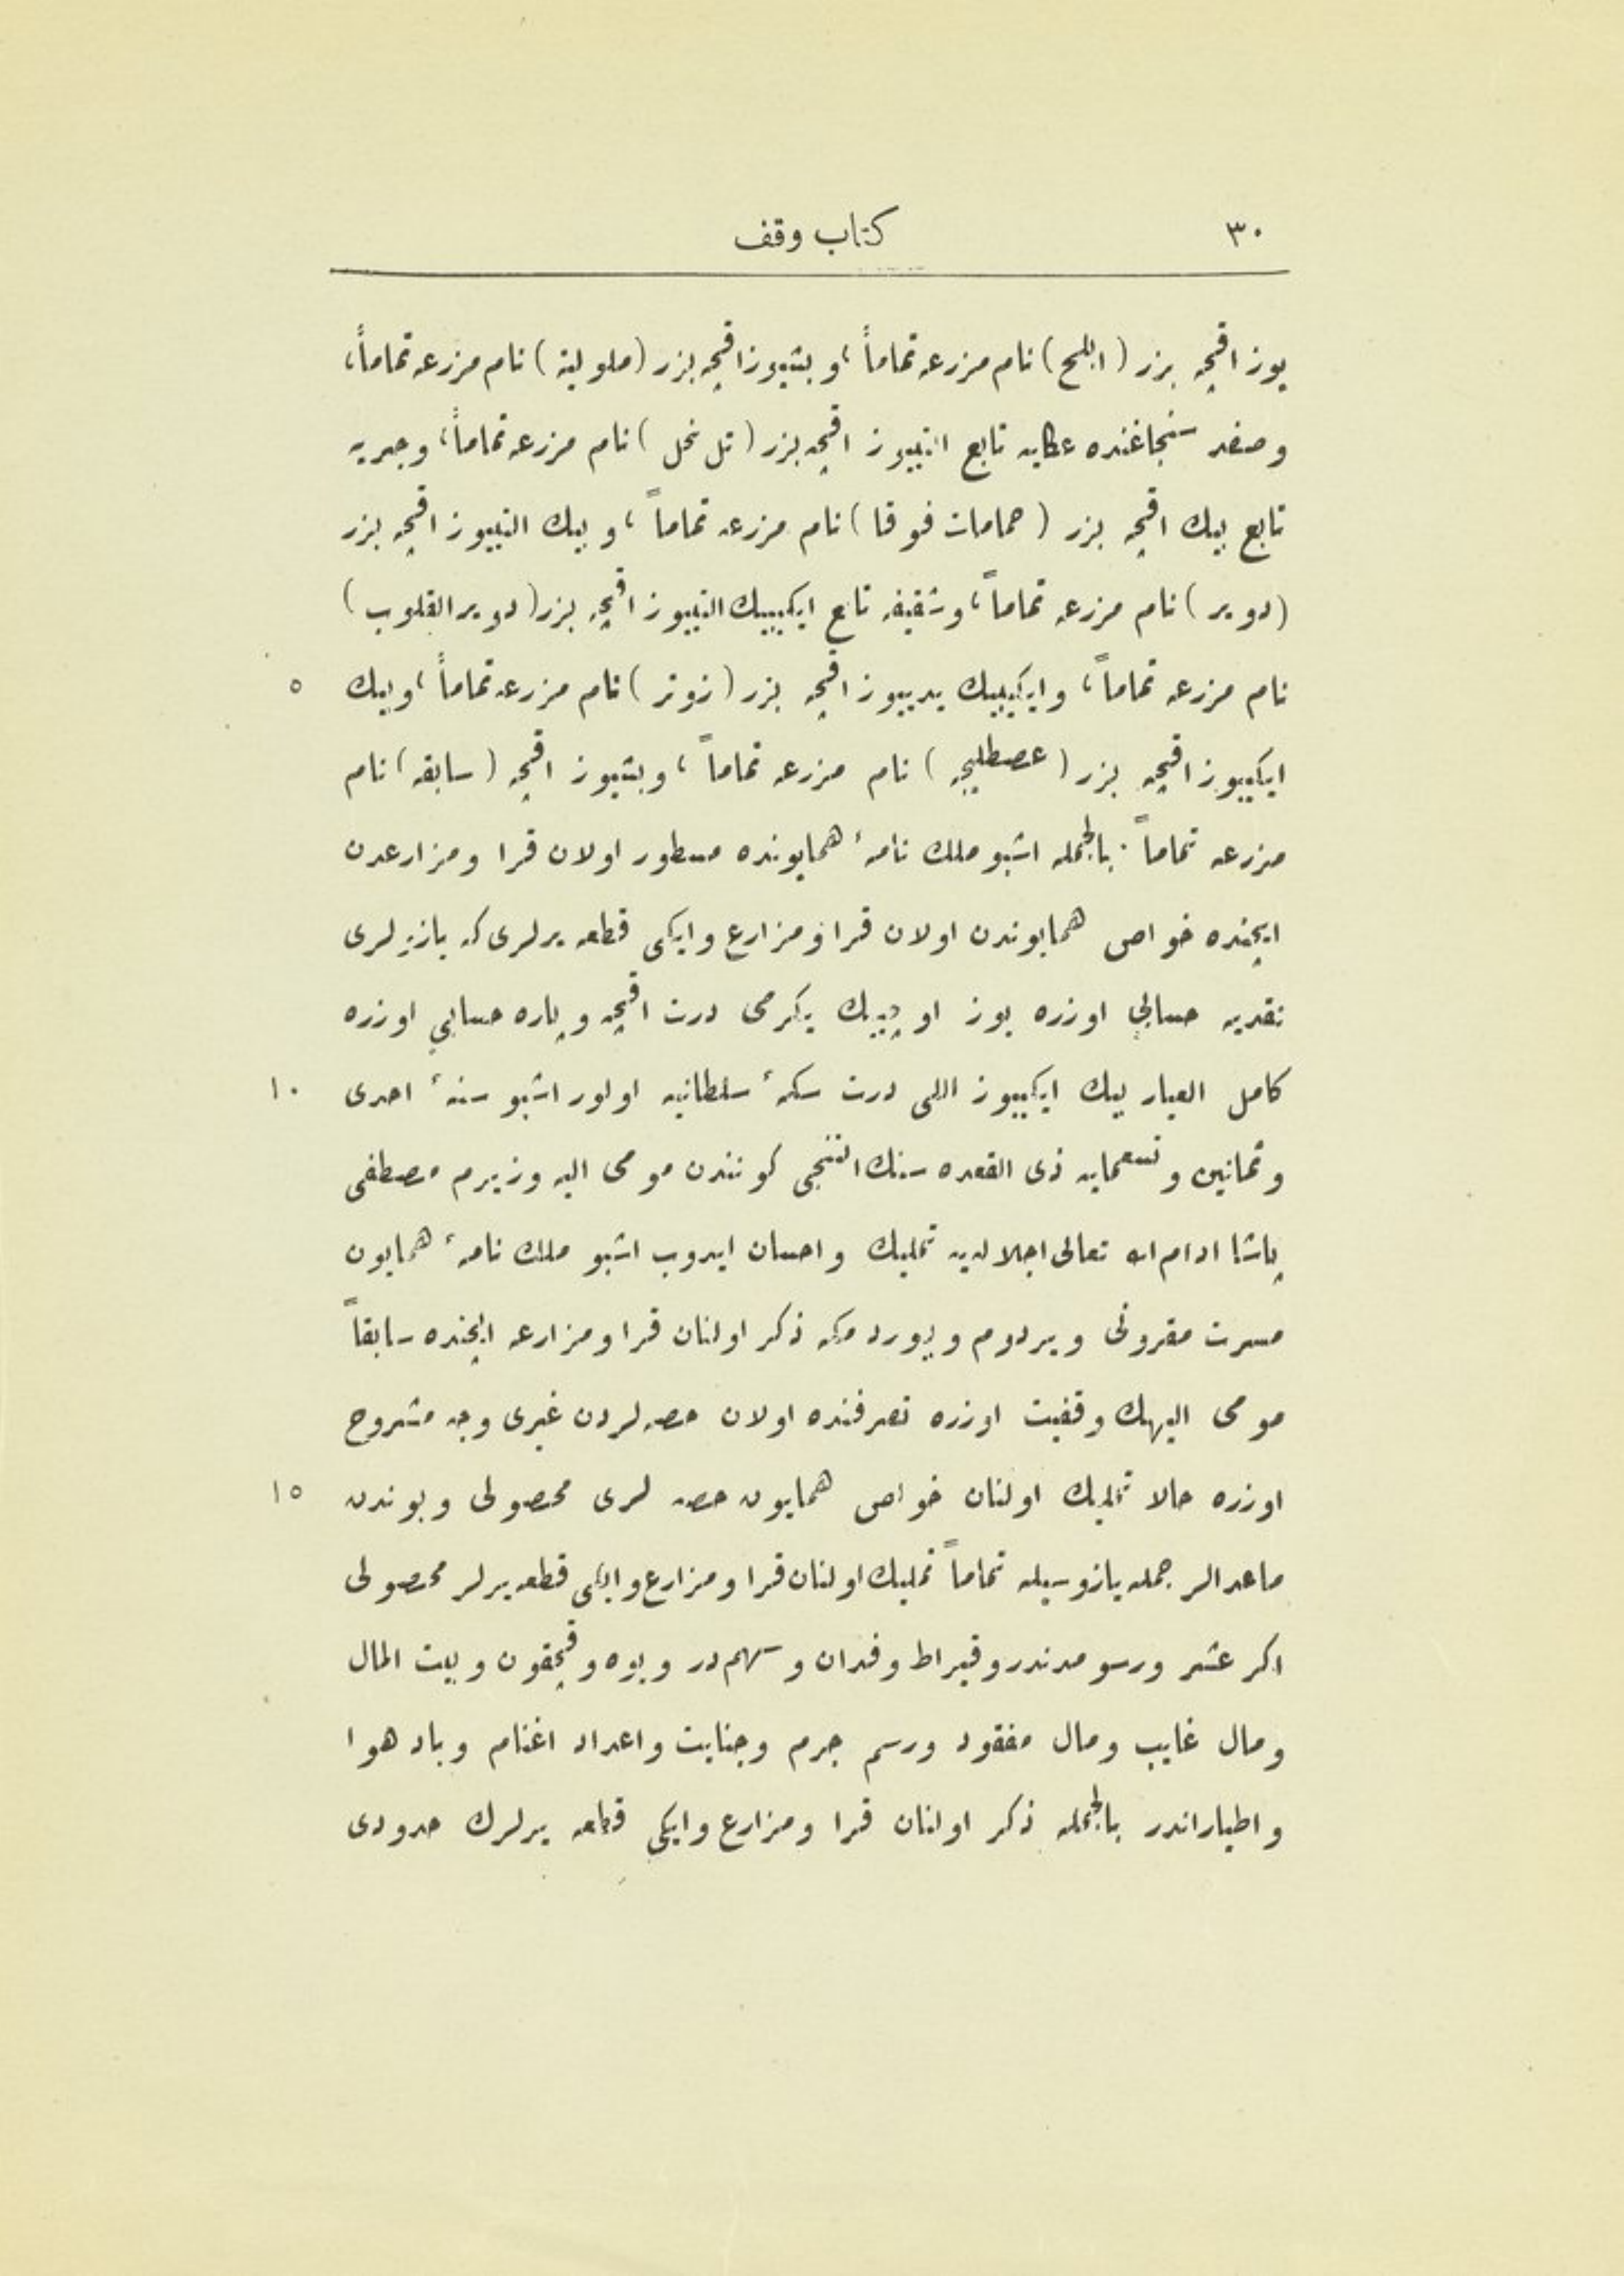 ٣٠
كتاب وقف
يوز اقچه بزر (ابلح) نام مزرعه تماماً، وبشيوز اقچه بزر (ملولية) نام مزرعه تماماً،
وصفد سنجاغنده عكايه تابع التييوز اقچه بزر (تل نحل) نام مزرعه تماماً، وجيريه
تابع بيك اقچه بزر (حمامات فوقا) نام مزرعه تماماً، وبيك التييوز اقچه بزر
(دوير) نام مزرعه تماماً، وشقيفه تابع ايكيبيك التييوز اقچه بزر (دوير القلوب)
نام مزرعه تماماً، وايكيبيك يدييوز اقچه بزر (زوتر) نام مزرعه تماماً، وبيك
٥
ايكييوز اقچه بزر (عصطليجه) نام مزرعه تماماً، وبشيوز اقچه (سابقه) نام
مزرعه تماماً. بالجمله اشبو ملك نامۀ همايونده مسطور اولان قرا ومزارعدن
ايچنده خواص همايوندن اولان قرا ومزارع وايكى قطعه يرلرى كه يازيلرى
نقديه حسابى اوزره يوز اوچبيك يكرمى درت اقچه وپاره حسابى اوزره
كامل العيار بيك ايكييوز اللى درت سكۀ سلطانيه اولور اشبو سنۀ احدى
١٠
وثمانين وتسعمايه ذى القعده سنك التنجى كونندن مومى اليه وزيرم مصطفى
پاشا ادام الله تعالى اجلالديه تمليك واحسان ايدوب اشبو ملك نامۀ همايون
مسرت مقرونى ويردوم وبيوردمكه ذكر اولنان قرا ومزارعه ايچنده سابقاً
مومى اليهك وقفيت اوزره تصرفنده اولان حصه لردن غيرى وجه مشروح
اوزره حالا تمليك اولنان خواص همايون حصه لرى محصولى وبوندن
١٥
ماعدالر جمله يازوسيله تماماً تمليك اولنان قرا ومزارع وايكى قطعه يرلر محصولى
اكر عشر ورسومدندر وقيراط وفدان وسهم در ويوه وقچقون وبيت المال
ومال غايب ومال مفقود ورسم جرم وجنايت واعداد اغنام وباد هوا
واطياراندر بالجمله ذكر اولنان قرا ومزارع وايكى قطعه يرلرك حدودى